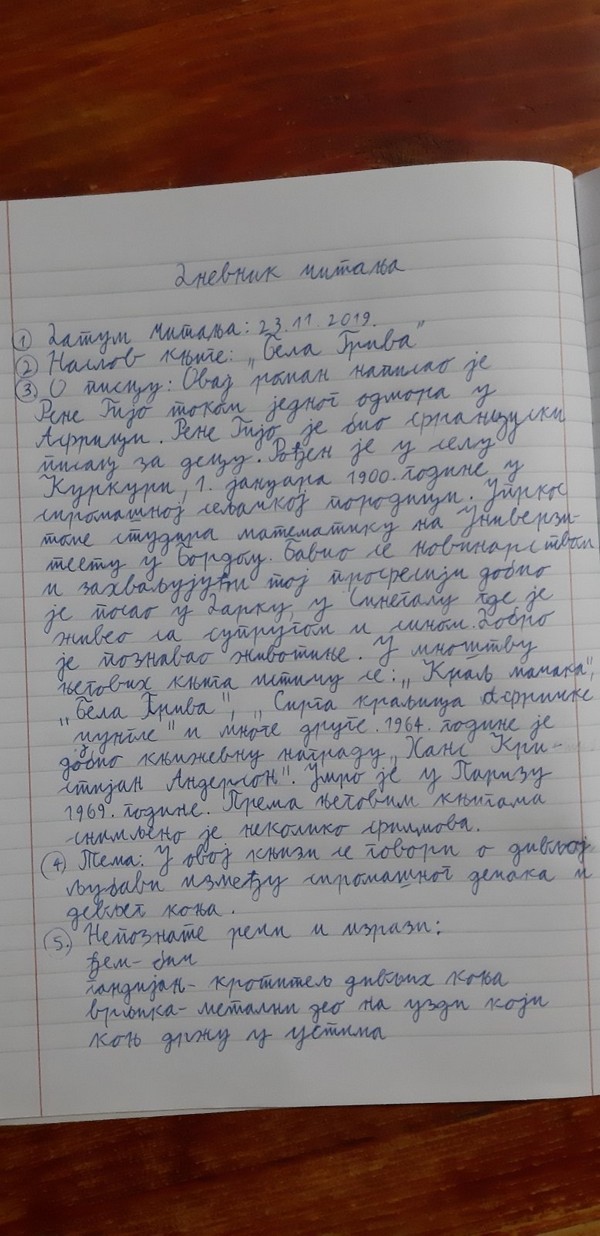 Дневник читања
① Датум читања: 23.11.2019.
② Наслов књиге: „Бела Грива"
③ О писцу: Овај роман написао је
Рене Гијо током једног одмора у
Африци. Рене Гијо је био француски
писац за децу. Рођен је у селу
Куркури, 1. јануара 1900. године у
сиромашној сељачкој породици. Упркос
томе студира математику на Универзи-
тету у Бордоу. Бавио се новинарством
и захваљујући тој професији добио
је посао у Дарку, у Сенегалу где је
живео са супругом и сином. Добро
је познавао животиње. У мноштву
његових књига истичу се: „Краљ мачака",
„Бела Грива", „Сирга краљица афричке
џунгле" и многе друге. 1964. године је
добио књижевну награду „Ханс Кри-
стијан Андерсон". Умро је у Паризу
1969. године. Према његовим књигама
снимљено је неколико филмова.
④ Тема: У овој књизи се говори о дивљој
љубави између сиромашног дечака и
дивљег коња.
⑤. Непознате речи и изрази:
ђем- бич
гандијан- кротитељ дивљих коња
врљика- метални део на узди који
коњ држу у устима